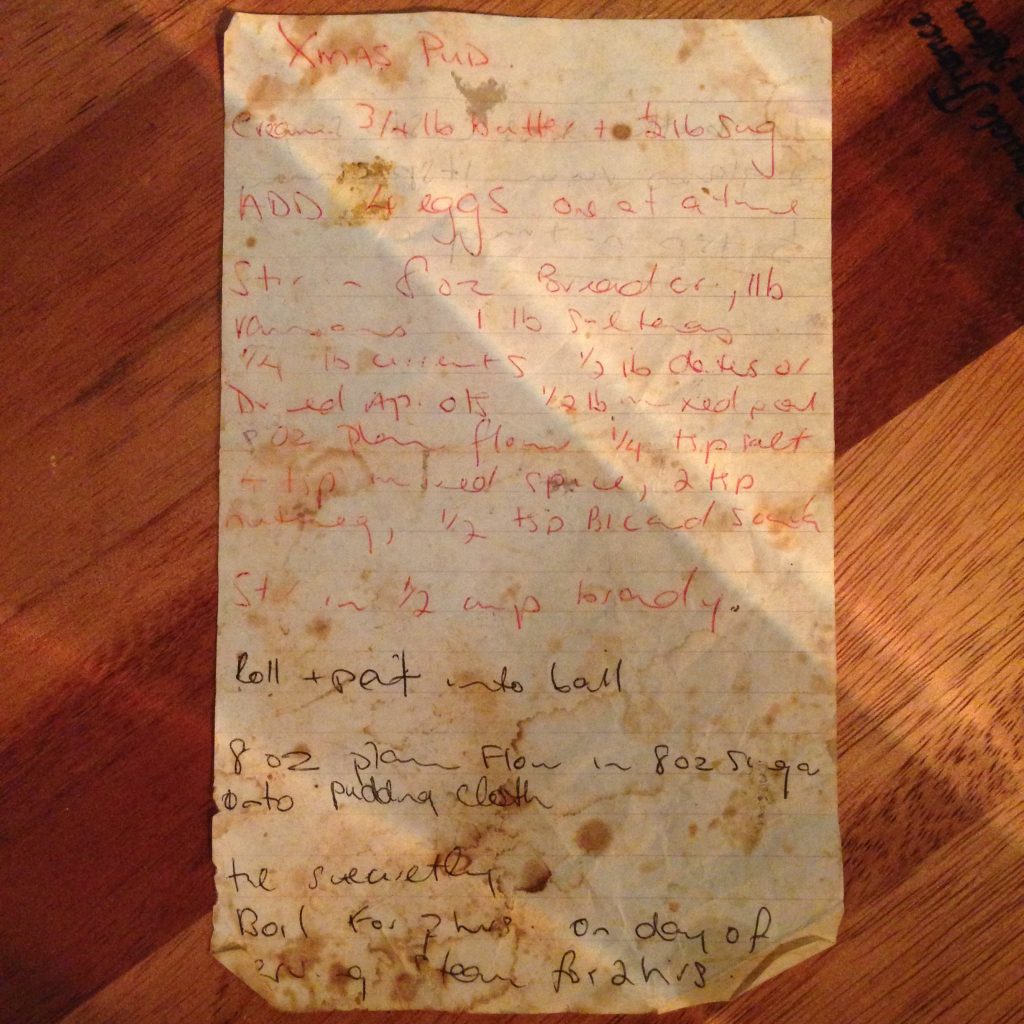 Xmas Pud.
Cream 3/4 lb butter + 1/2 lb Sug
ADD 4 eggs one at a time
Stir in 8 oz Breadcr., 1lb
1 lb Sultanas
1/4 lb currents 1/2 lb dates or
Dried Ap. OK 1/2 lb mixed peel
8 oz plain flour 1/4 tsp salt
tsp mixed spice, 2 tsp
nutmeg, 1/2 tsp Bicard
Stir in 1/2 cup brandy.
Roll + pat into ball
8 oz plain Flour in 8 oz Suga
onto pudding cloth
tie
Boil For 7 hrs. on day of
Steam for 2 hrs.
France